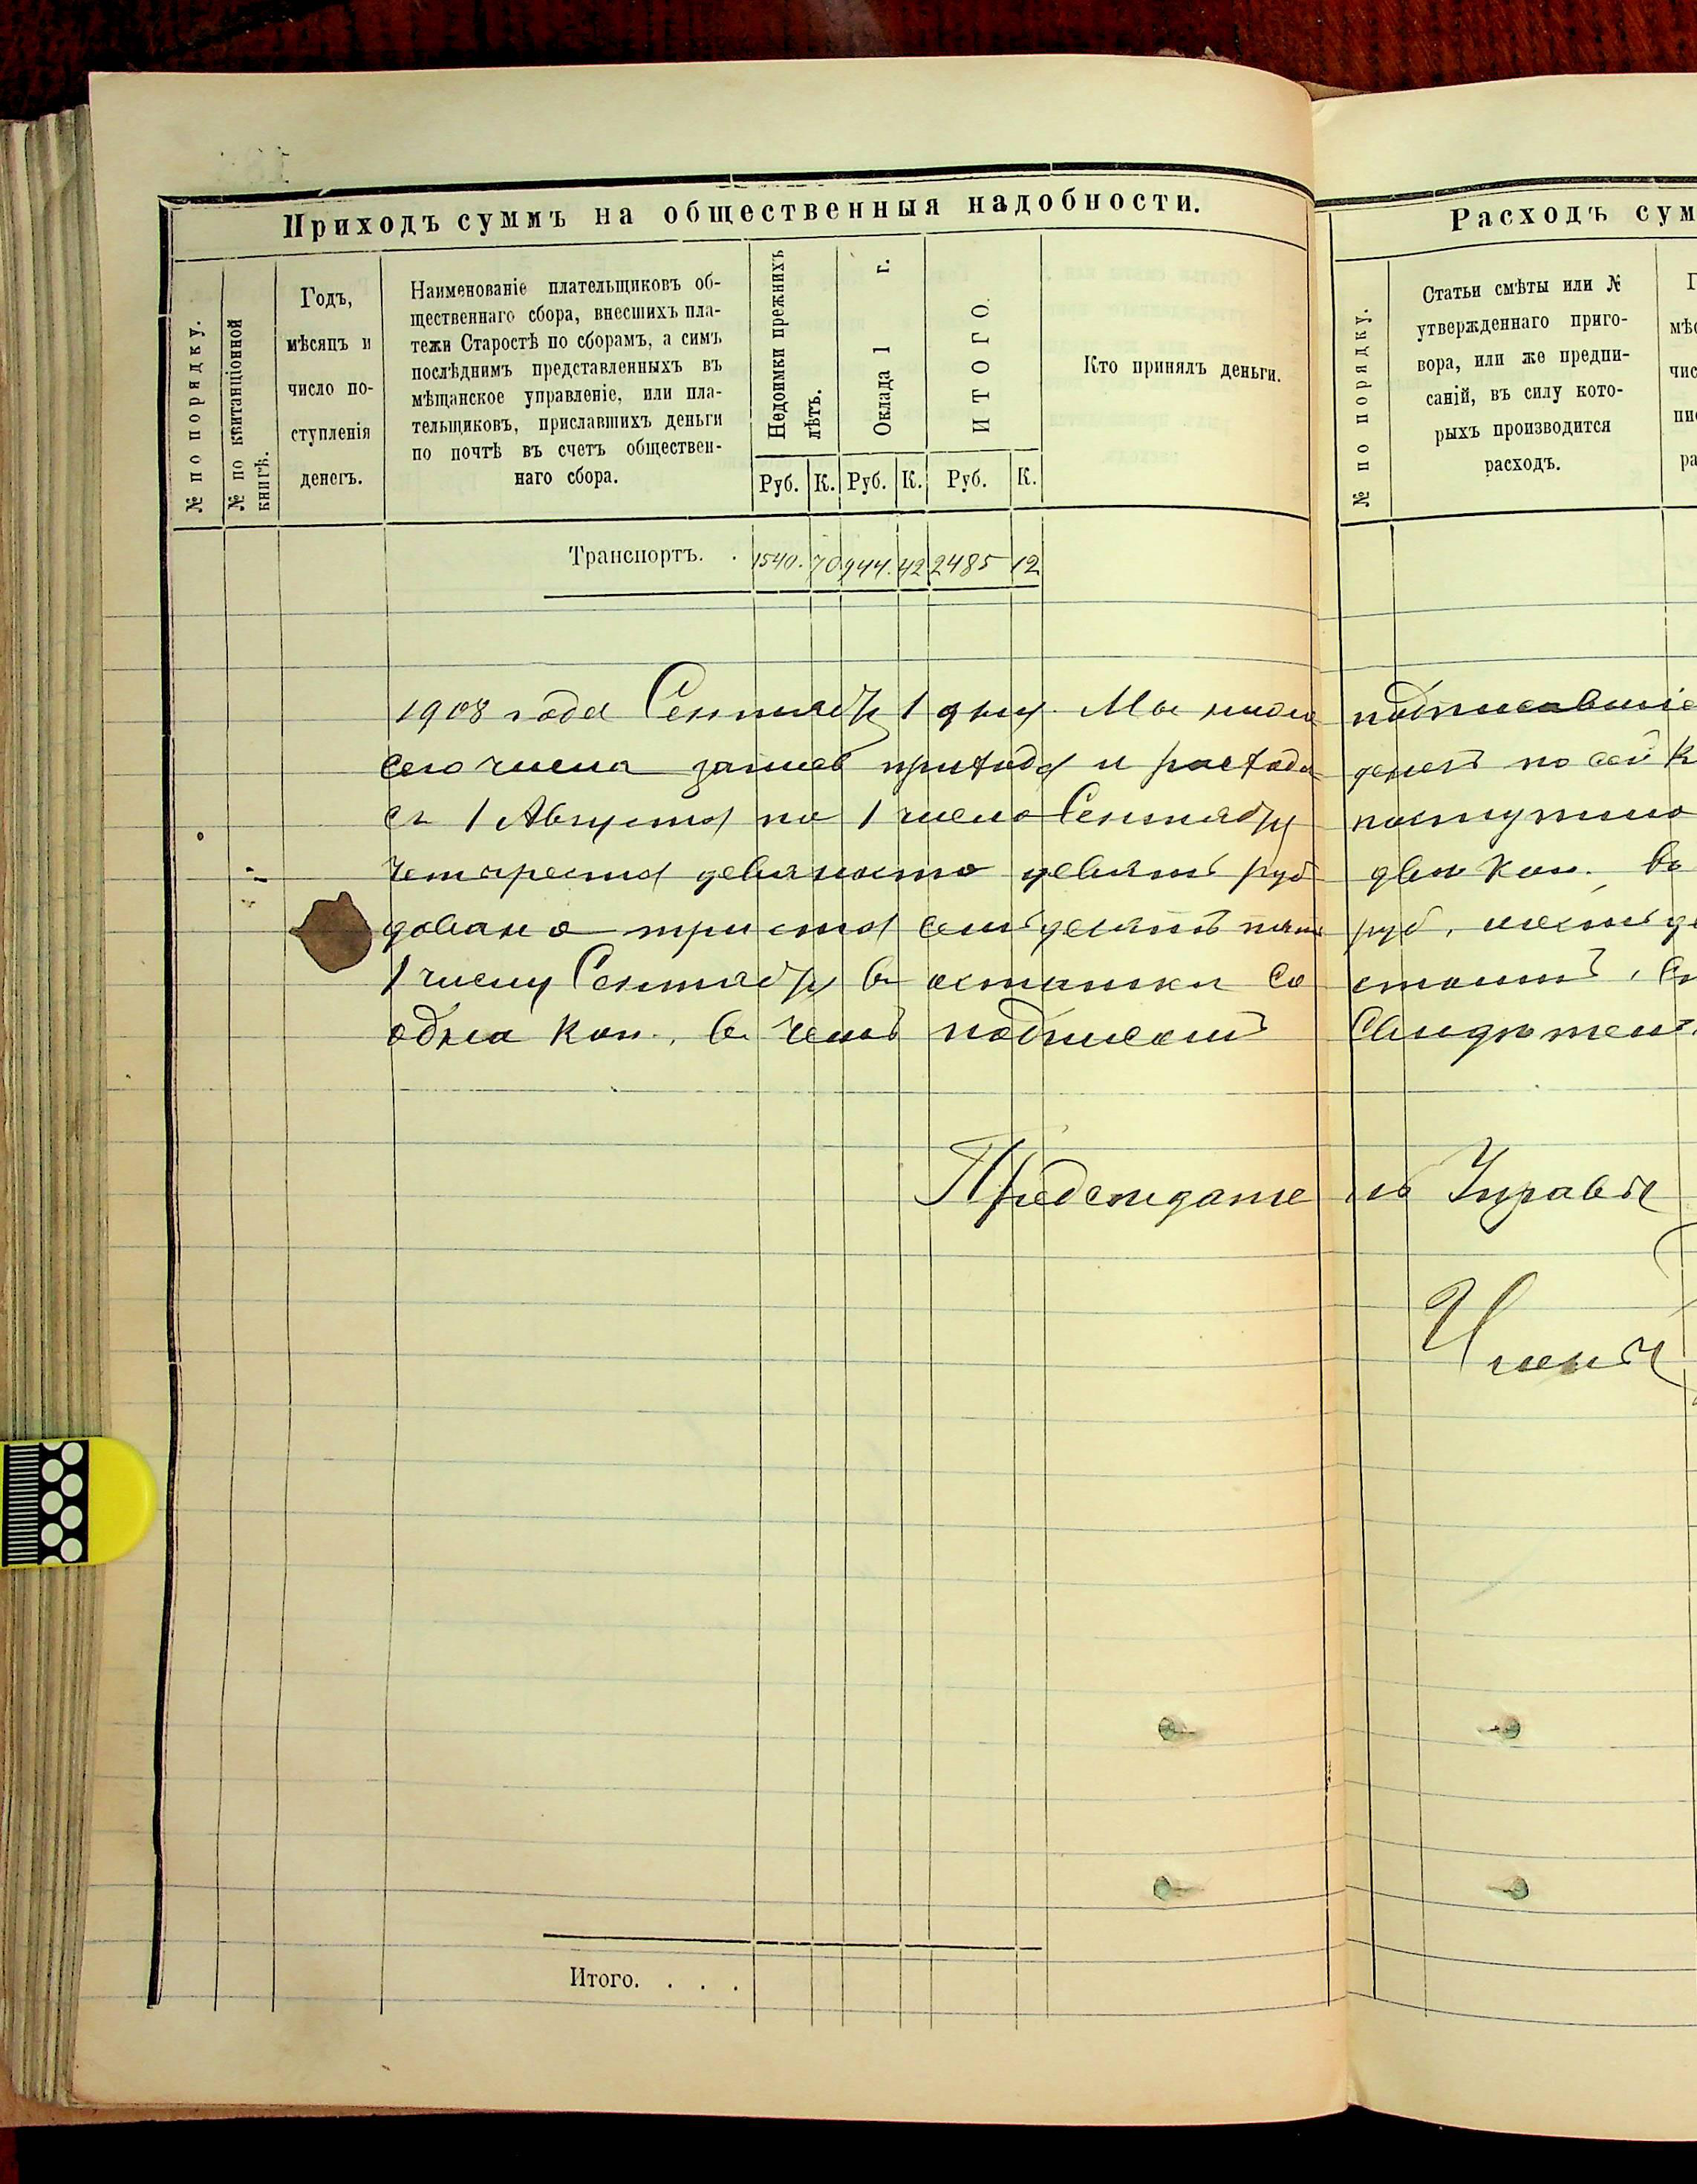 Приходъ суммъ на общественныя надобности.
№ по порядку.
№ по квитанціонной
книгѣ.
Годъ,
мѣсяцъ и
число по-
ступленія
денегъ.
Наименованіе плательщиковъ об-
щественнаго сбора, внесшихъ пла-
тежи Старостѣ по сборамъ, а симъ
послѣднимъ представленныхъ въ
мѣщанское управленіе, или пла-
тельщиковъ, приславшихъ деньги
по почтѣ въ счетъ обществен-
наго сбора.
Недоимки прежнихъ
лѣтъ.
Оклада 1 г.
ИТОГО.
Кто принялъ деньги.
Руб. К. Руб. К. Руб. К.
Транспортъ. . 1540. 70 944. 42 2485 12
1908 года Сентября 1 дня. Мы ниже
сего числа записв прихода и расхода
съ 1 Августа по 1 число Сентября
четыреста девяносто девять руб
довано триста семьдесятъ пять
1 числу Сентября въ остатки со
одна коп., въ чемъ подписомъ
Предсѣдате
Итого. . . .
Расходъ сум
№ по порядку.
Статьи смѣты или №
утвержденнаго приго-
вора, или же предпи-
саній, въ силу кото-
рыхъ производится
расходъ.
Г
мѣс
чис
пис
ра
подписавшіе
денегъ по сей к
поступило
двѣ коп. во
руб, шестьде
стоитъ, ст
Свидѣтель
ль Управы
Члены